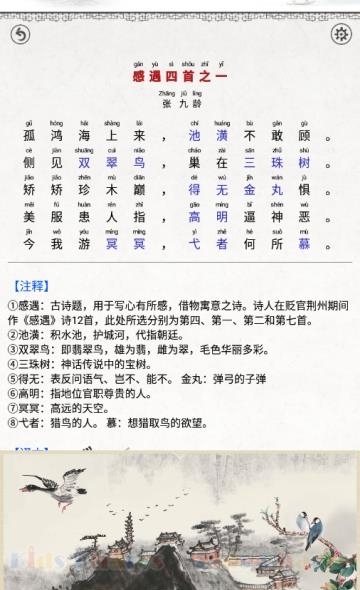 gǎn yù sì shǒu zhī yī
感遇四首之一
Zhāng jiǔ líng
张九龄
gū hóng hǎi shàng lái chí huáng bù gǎn gù
孤鸿海上来，池潢不敢顾。
cè jiàn shuāng cuì niǎo cháo zài sān zhū shù
侧见双翠鸟，巢在三珠树。
jiǎo jiǎo zhēn mù diān dé wú jīn wán jù
矫矫珍木巅，得无金丸惧。
měi fú huàn rén zhǐ gāo míng bī shén wù
美服患人指，高明逼神恶。
jīn wǒ yóu míng míng yì zhě hé suǒ mù
今我游冥冥，弋者何所慕。
【注释】
①感遇：古诗题，用于写心有所感，借物寓意之诗。诗人在贬官荆州期间
作《感遇》诗12首，此处所选分别为第四、第一、第二和第七首。
②池潢：积水池，护城河，代指朝廷。
③双翠鸟：即翡翠鸟，雄为翡，雌为翠，毛色华丽多彩。
④三珠树：神话传说中的宝树。
⑤得无：表反问语气、岂不、能不。 金丸：弹弓的子弹
⑥高明：指地位官职尊贵的人。
⑦冥冥：高远的天空。
⑧弋者：猎鸟的人。 慕：想猎取鸟的欲望。